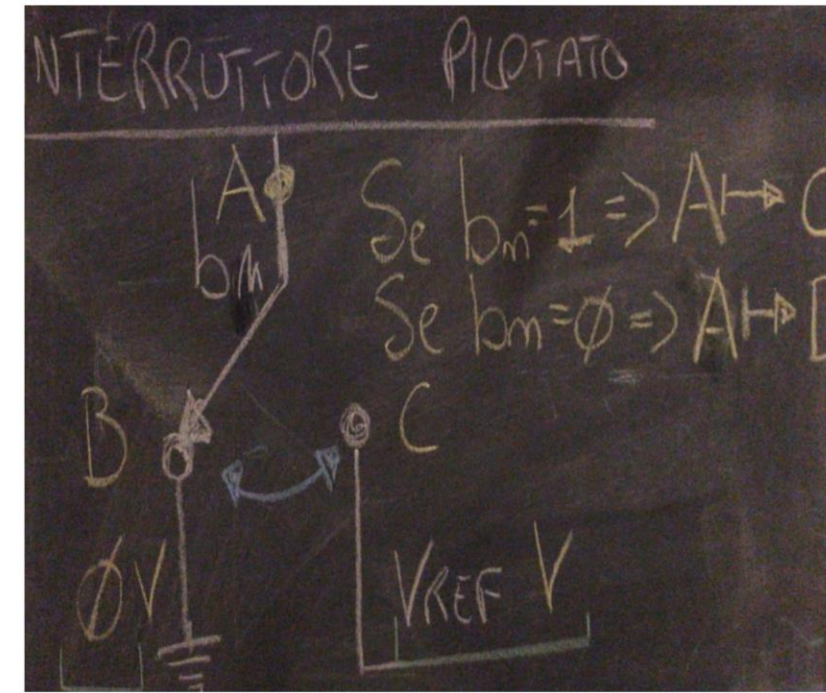 NTERRUTTORE PILOTATO
A
bn
Se bn=1 => A↦ C
Se bn=ø => A↦
B
C
øV
VREF V